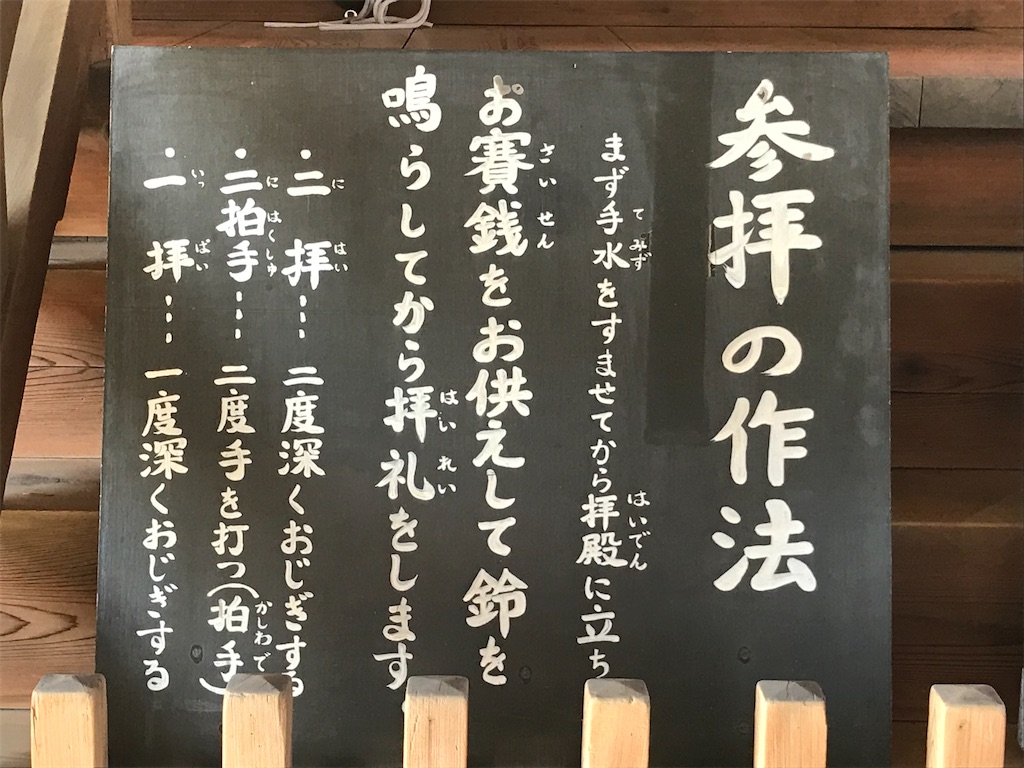 参拝の作法
まず手水をすませてから拝殿に立ち
お賽銭をお供えして鈴を
鳴らしてから拝礼をします。
・二拝… 二度深くおじぎする
・二拍手… 二度手を打つ(拍手)
・一拝… 一度深くおじぎする